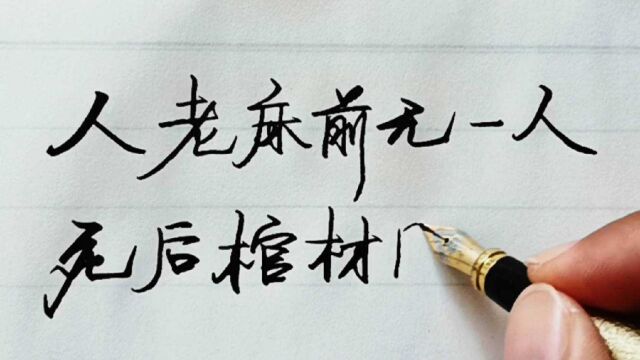 人老床前无一人
死后棺材